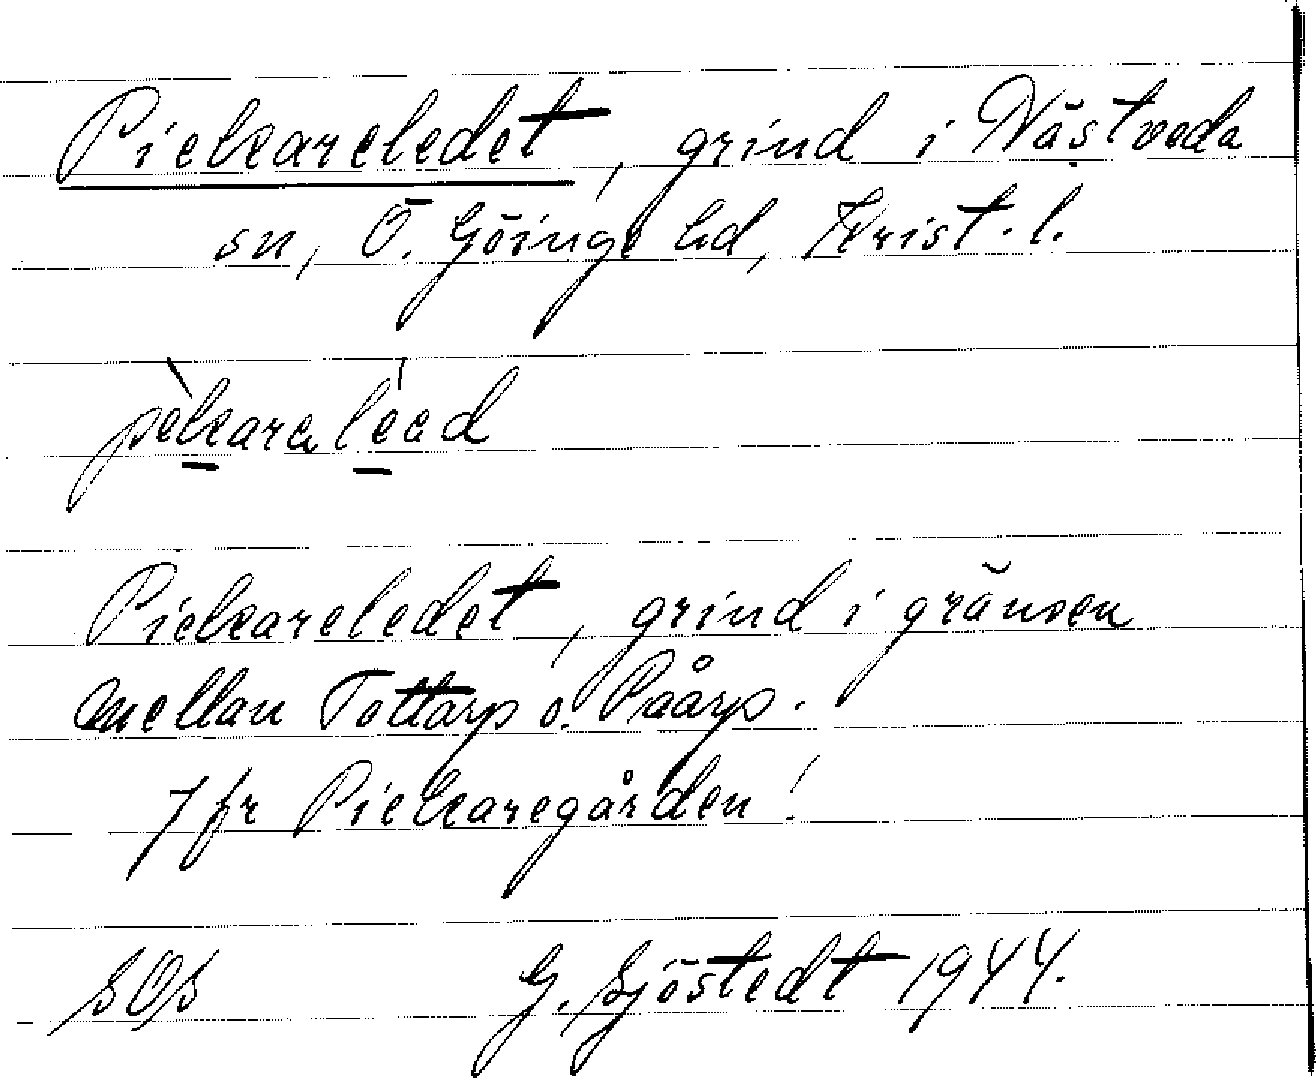 Piekareledet, grind i Hästveda
sn, Ö. Göinge hd, Krist. l.
pèkara léad
Piekareledet, grind i gränsen
mellan Tottarp o. Påarp.
Jfr Piekaregården!
SOS G. Sjöstedt 1944.